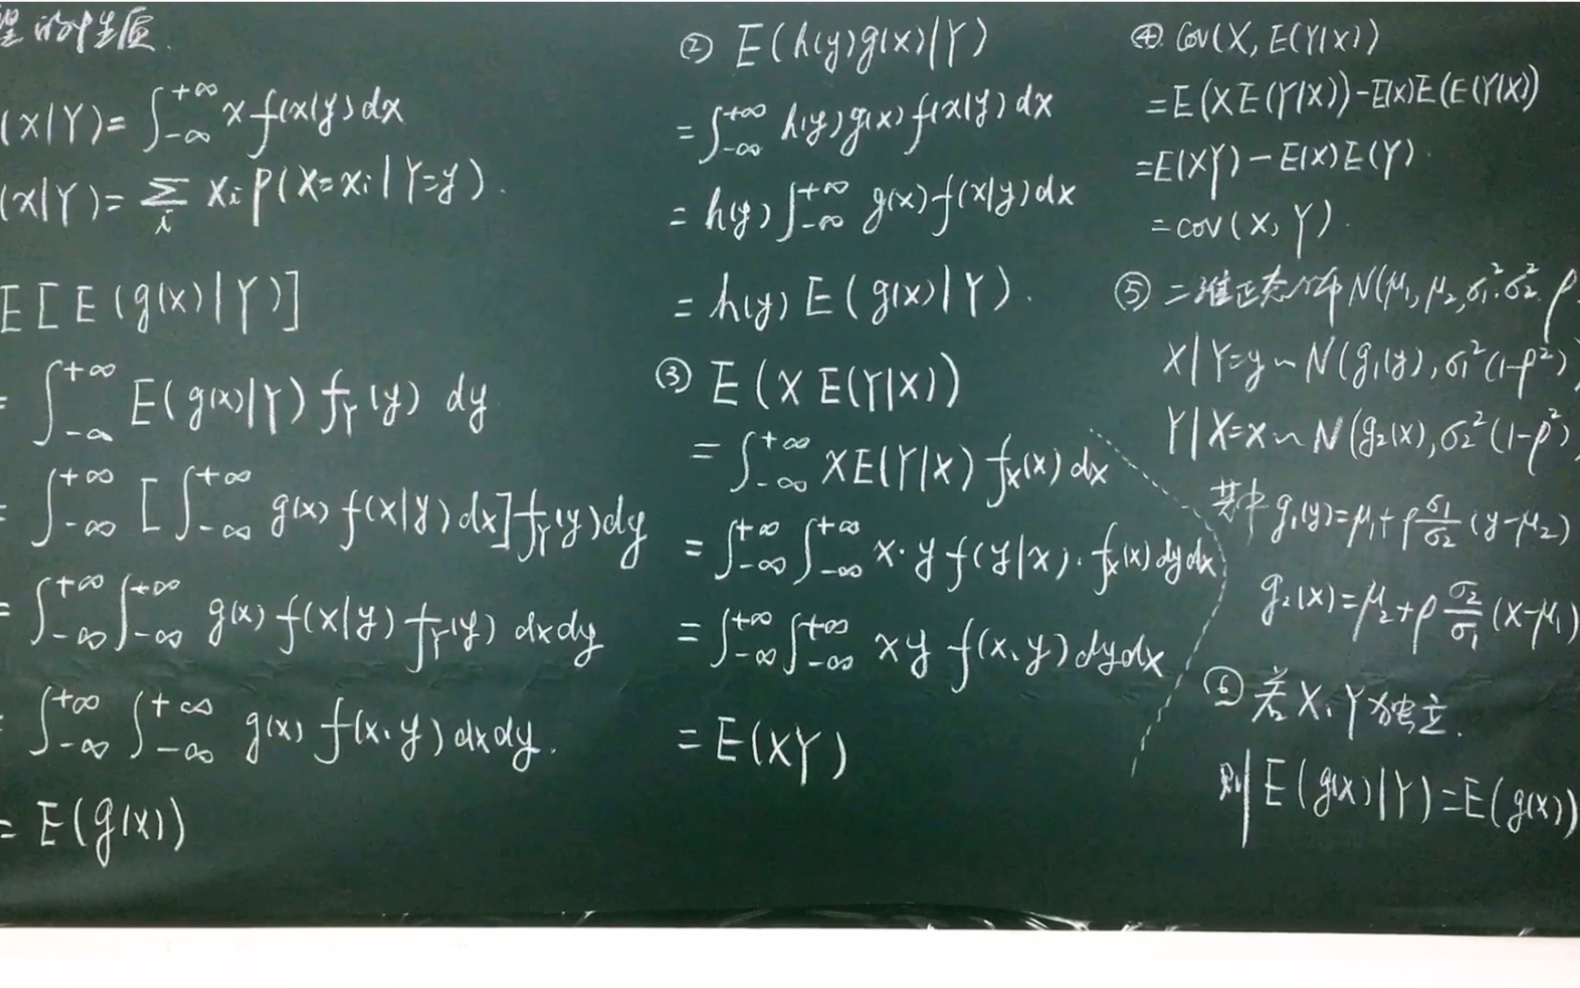 望的性质.
(X|Y)=∫_{-∞}^{+∞} x f(x|y) dx
(X|Y)=∑_i x_i P(X=x_i|Y=y).
E[E(g(x)|Y)]
=∫_{-∞}^{+∞} E(g(x)|Y) f_Y(y) dy
=∫_{-∞}^{+∞} [∫_{-∞}^{+∞} g(x) f(x|y) dx] f_Y(y) dy
=∫_{-∞}^{+∞} ∫_{-∞}^{+∞} g(x) f(x|y) f_Y(y) dxdy
=∫_{-∞}^{+∞} ∫_{-∞}^{+∞} g(x) f(x,y) dxdy.
=E(g(x))
② E(h(y)g(x)|Y)
=∫_{-∞}^{+∞} h(y)g(x) f(x|y) dx
=h(y) ∫_{-∞}^{+∞} g(x) f(x|y) dx
=h(y) E(g(x)|Y).
③ E(X E(Y|X))
=∫_{-∞}^{+∞} XE(Y|X) f_X(x) dx
=∫_{-∞}^{+∞} ∫_{-∞}^{+∞} x·y f(y|x)·f_X(x) dydx
=∫_{-∞}^{+∞} ∫_{-∞}^{+∞} xy f(x,y) dydx
=E(XY)
④ Cov(X, E(Y|X))
=E(XE(Y|X))-E(X)E(E(Y|X))
=E(XY)-E(X)E(Y).
=cov(X,Y).
⑤ 二维正态分布 N(μ₁,μ₂,σ₁²,σ₂²,ρ
X|Y=y~N(g₁(y),σ₁²(1-ρ²)
Y|X=x~N(g₂(x),σ₂²(1-ρ²)
其中 g₁(y)=μ₁+ρ\frac{σ₁}{σ₂}(y-μ₂)
g₂(x)=μ₂+ρ\frac{σ₂}{σ₁}(x-μ₁)
⑥ 若X,Y独立.
则 E(g(x)|Y)=E(g(x))